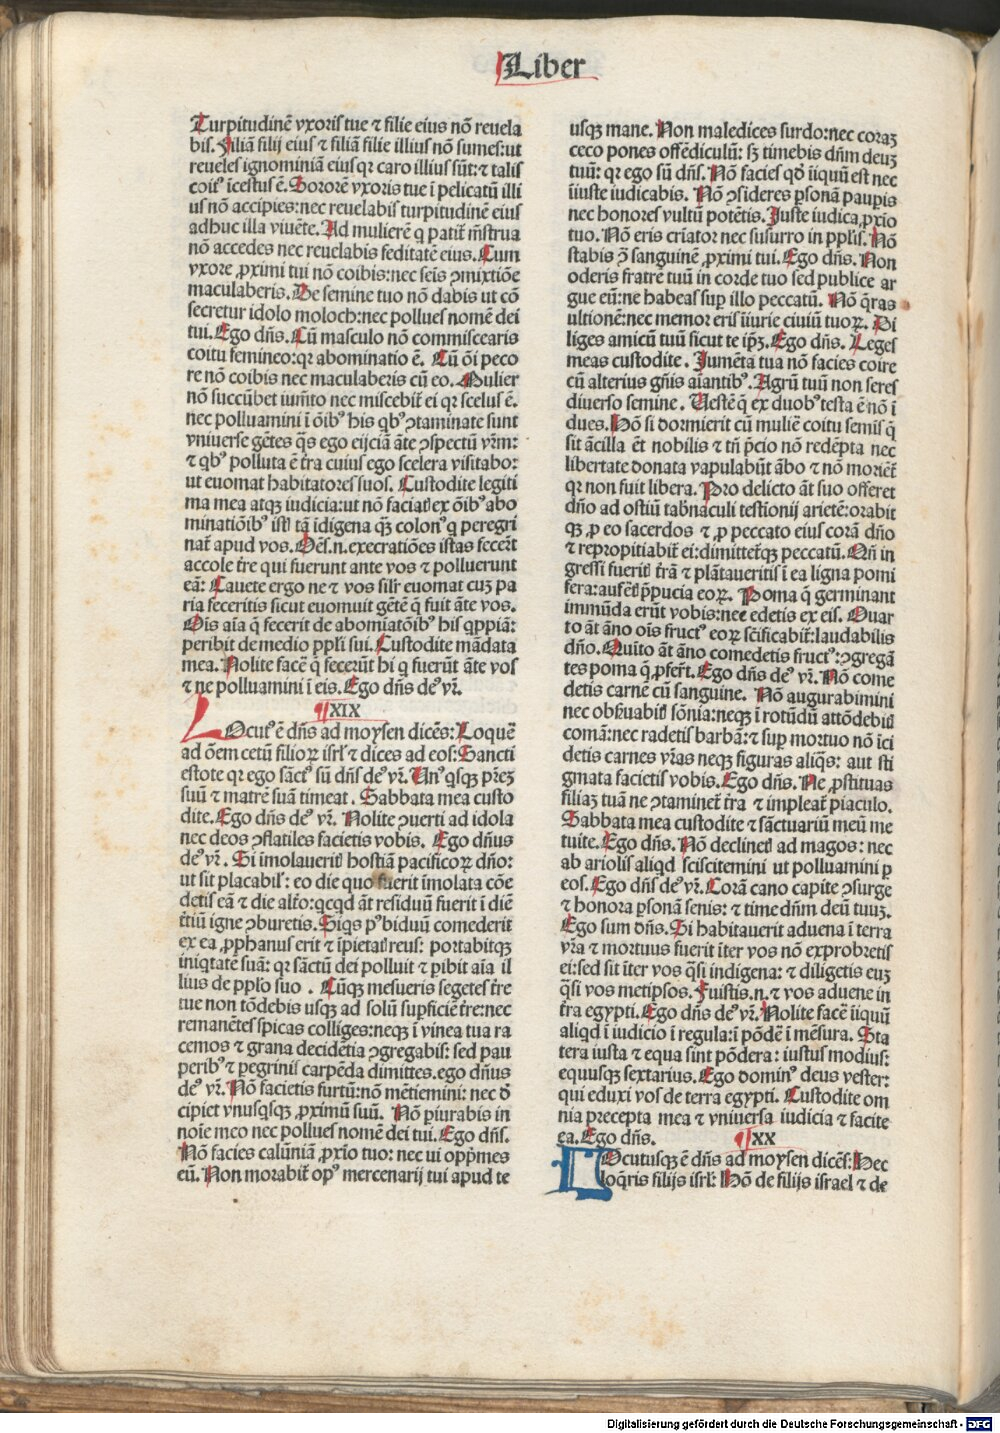 Liber
Turpitudinē vxoris tue ⁊ filie eius nō reuela
bis. Filiā filij eius ⁊ filiā filie illius nō sumes: ut
reueles ignominiā eius qꝛ caro illius sūt: ⁊ talis
coitꝰ īcestus ē. Sororē vxoris tue ī pelicatū illi
us nō accipies: nec reuelabis turpitudinē eius
adhuc illa viuēte. Ad mulierē q̄ patit̄ mēstrua
nō accedes nec reuelabis feditatē eius. Cum
vxore ꝓximi tui nō coibis: nec seīs ꝯmixtiōe
maculaberis. De semine tuo nō dabis ut cō
secretur idolo moloch: nec pollues nomē dei
tui. Ego dn̄s. Cū masculo nō commiscearis
coitu femineo: qꝛ abominatio ē. Cū oī peco
re nō coibis nec maculaberis cū eo. Mulier
nō succūbet iumēto nec miscebit̄ ei qꝛ scelus ē.
nec polluamini ī oībꝰ his qbꝰ ꝯtaminate sunt
vniuerse gētes q̄s ego eijciā āte ꝯspectū vr̄m:
⁊ qbꝰ polluta ē tr̄a cuius ego scelera visitabo:
ut euomat habitatores suos. Custodite legiti
ma mea atqꝫ iudicia: ut nō faciatꝭ ex oībꝰ abo
minatiōibꝰ istꝭ tā īdigena q̄ꝫ colonꝰ q peregri
nat̄ apud vos. Oēs .n. execratiōes istas fecer̄t
accole tr̄e qui fuerunt ante vos ⁊ polluerunt
eā: Cauete ergo ne ⁊ vos silr̄ euomat cuꝫ pa
ria feceritis sicut euomuit gētē q̄ fuit āte vos.
Oīs aīa q̄ fecerit de abomīatōibꝰ his qppiā:
peribit de medio ppl̄i sui. Custodite mādata
mea. Nolite facē q̄ fecerūt hi q fuerūt āte vos
⁊ ne polluamini ī eis. Ego dn̄s deꝰ vr̄.
¶XIX
LOcutꝰ ē dn̄s ad moysen dicēs: Loquē
ad ōem cetū filioꝝ isrl̄ ⁊ dices ad eos: Sancti
estote qꝛ ego sāctꝰ sū dn̄s deꝰ vr̄. Unꝰqsqꝫ pr̄eꝫ
suū ⁊ matrē suā timeat. Sabbata mea custo
dite. Ego dn̄s deꝰ vr̄. Nolite ꝯuerti ad idola
nec deos ꝯflatiles facietis vobis. Ego dn̄us
deꝰ vr̄. Si imolaueritꝭ hostiā pacificoꝝ dn̄o:
ut sit placabilꝭ: eo die quo fuerit īmolata cōe
detis eā ⁊ die alt̄o: qcqd āt residuū fuerit ī diē
t̄tiū igne ꝯburetis. Siqs pꝰ biduū comederit
ex ea ꝓphanus erit ⁊ īpietatꝭ reus: portabitqꝫ
iniqtatē suā: qꝛ sāctū dei polluit ⁊ p̱ibit aīa il
lius de ppl̄o suo. Cūqꝫ mesueris segetes tr̄e
tue non tōdebis usqꝫ ad solū supficiē tr̄e: nec
remanētes spicas colliges: neqꝫ ī vinea tua ra
cemos ⁊ grana decidētia ꝯgregabis: sed pau
peribꝰ ⁊ pegrinis carpēda dimittes. ego dn̄us
deꝰ vr̄. Nō facietis furtū: nō mētiemini: nec de
cipiet vnusqsqꝫ ꝓximū suū. Nō ꝑiurabis in
noīe meo nec pollues nomē dei tui. Ego dn̄s.
Nō facies calūniā ꝓxīo tuo: nec ui opp̄mes
eū. Non morabit̄ opꝰ mercenarij tui apud te
usqꝫ mane. Non maledices surdo: nec coraꝫ
ceco pones offēdiculū: sꝫ timebis dn̄m deuꝫ
tuū: qꝛ ego sū dn̄s. Nō facies qd̄ īiquū est nec
iiuste iudicabis. Nō ꝯsideres ꝑsonā pauꝑis
nec honores vultū potētis. Juste iudica ꝓxīo
tuo. Nō eris crīator nec susurro in ppl̄is. Nō
stabis ꝯ̄ sanguinē ꝓximi tui. Ego dn̄s. Non
oderis fratrē tuū in corde tuo sed publice ar
gue eū: ne habeas suꝑ illo peccatū. Nō q̄ras
ultionē: nec memor eris īiurie ciuiū tuoꝝ. Di
liges amicū tuū sicut te ip̄ꝫ. Ego dn̄s. Leges
meas custodite. Jumēta tua nō facies coire
cū alterius gn̄is aīantibꝰ. Agrū tuū non seres
diuerso semine. Uestē q̄ ex duobꝰ texta ē nō ī
dues. Hō si dormierit cū muliē coitu semīs q̄
sit ācilla ēt nobilis ⁊ tn̄ p̄cio nō redēpta nec
libertate donata vapulabūt ābo ⁊ nō moriēt̄
qꝛ non fuit libera. Pro delicto āt suo offeret
dn̄o ad ostiū tab̄naculi testīonij arietē: orabit
qꝫ ꝓ eo sacerdos ⁊ ꝓ peccato eius corā dn̄o
⁊ repropitiabit̄ ei: dimittet̄qꝫ peccatū. Qn̄ in
gressi fueritꝭ tr̄ā ⁊ plātaueritis ī ea ligna pomi
fera: auferetꝭ p̄pucia eoꝝ. Poma q̄ germinant
immūda erūt vobis: nec edetis ex eis. Quar
to āt āno oīs fructꝰ eoꝝ sc̄ificabit̄: laudabilis
dn̄o. Quīto āt āno comedetis fructꝰ: ꝯgregā
tes poma q̄ ꝓfer̄t. Ego dn̄s deꝰ vr̄. Nō come
detis carnē cū sanguine. Nō augurabimini
nec obſ̄uabitꝭ sōnia: neqꝫ ī rotūdū attōdebitꝭ
comā: nec radetis barbā: ⁊ suꝑ mortuo nō īci
detis carnes vr̄as neqꝫ figuras aliq̄s: aut sti
gmata facietis vobis. Ego dn̄s. Ne ꝓstituas
filiaꝫ tuā ne ꝯtaminet̄ tr̄a ⁊ impleat̄ piaculo.
Sabbata mea custodite ⁊ sāctuariū meū me
tuite. Ego dn̄s. Nō declinetꝭ ad magos: nec
ab ariolis aliqd sciscitemini ut polluamini ꝑ
eos. Ego dn̄s deꝰ vr̄. Corā cano capite ꝯsurge
⁊ honora ꝑsonā senis: ⁊ time dn̄m deū tuuꝫ.
Ego sum dn̄s. Si habitauerit aduena ī terra
vr̄a ⁊ mortuus fuerit īter vos nō exprobretis
ei: sed sit īter vos q̄si indigena: ⁊ diligetis euꝫ
q̄si vos metipsos. Fuistis .n. ⁊ vos aduene in
tr̄a egypti. Ego dn̄s deꝰ vr̄. Nolite facē īiquū
aliqd ī iudicio ī regula: ī pōdē ī mēsura. Sta
tera iusta ⁊ equa sint pōdera: iustus modius:
equusqꝫ sextarius. Ego dominꝰ deus vester:
qui eduxi vos de terra egypti. Custodite om
nia precepta mea ⁊ vniuersa iudicia ⁊ facite
ea. Ego dn̄s. ¶XX
LOcutusqꝫ ē dn̄s ad moysen dicēs: Hec
loq̄ris filijs isrl̄: Hō de filijs israel ⁊ de
Digitalisierung gefördert durch die Deutsche Forschungsgemeinschaft - DFG